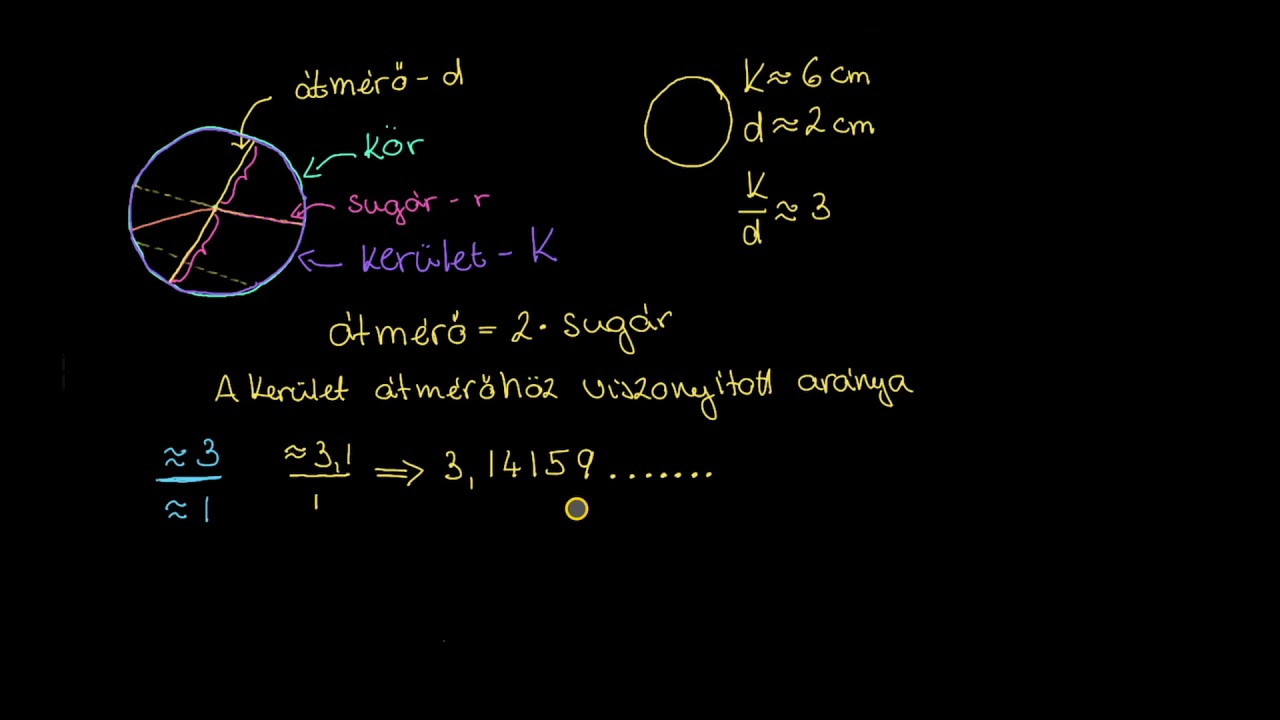 átmérő - d
kör
sugár - r
kerület - K
K ≈ 6 cm
d ≈ 2 cm
K/d ≈ 3
átmérő = 2 · sugár
A kerület átmérőhöz viszonyított aránya
≈ 3 / ≈ 1 ≈ 3,1 / 1 ⇒ 3,14159.......